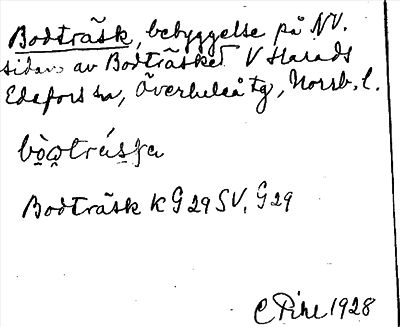 Bodträsk, bebyggelse på NV.
sidan av Bodträsket V Harads
Edefors sn, Överluleå tg, Norrb. l.
Bodträsk K G 29 SV, G 29
C Pihl 1928